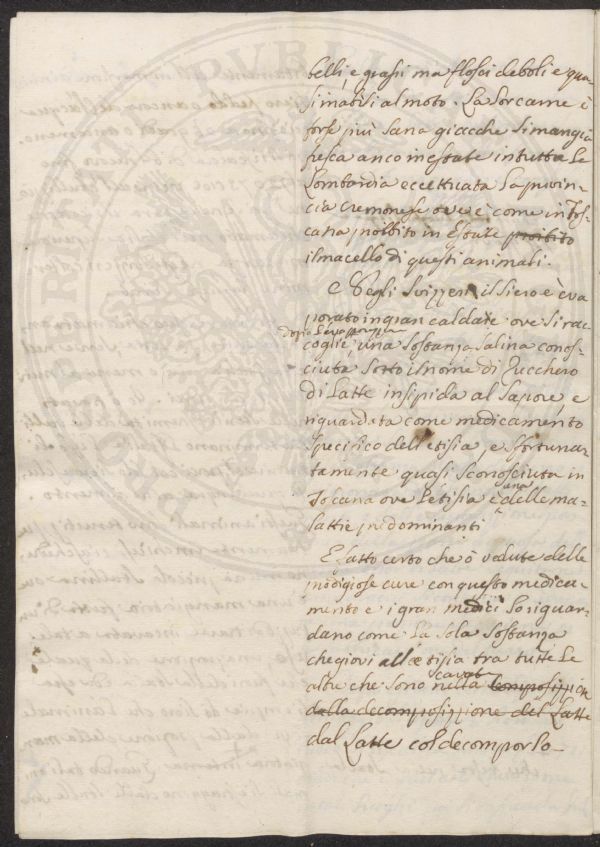 belli, e grassi ma flosci deboli e qua-
si inabili al moto. La Porcame è
forse più sana giacche si mangia
fresca anco in estate in tutta la
Lombardia eccettuata la provin-
cia Cremonese ove è come in Tos-
cana proibito in Estate proibito
il macello di questi animali.
Degli Svizzeri il siero è eva
porato in gran caldaie ove si rac-
dopo la
coglie, una sostanza salina conos-
ciuta sotto il nome di Zucchero
di Latte insipida al sapore, e
riguardata come medicamento
specifico dell'etisia, e sfortuna-
tamente quasi sconosciuta in
Toscana ove l'etisia è una delle ma-
lattie predominanti
E fatto certo che ò vedute delle
prodigiose cure con questo medica-
mento e i gran medici lo riguar-
dano come la sola sostanza
che giovi all'etisia tra tutte le
altre che sono cavate nella composizione
dalla decomposizione del Latte
dal Latte col decomporlo